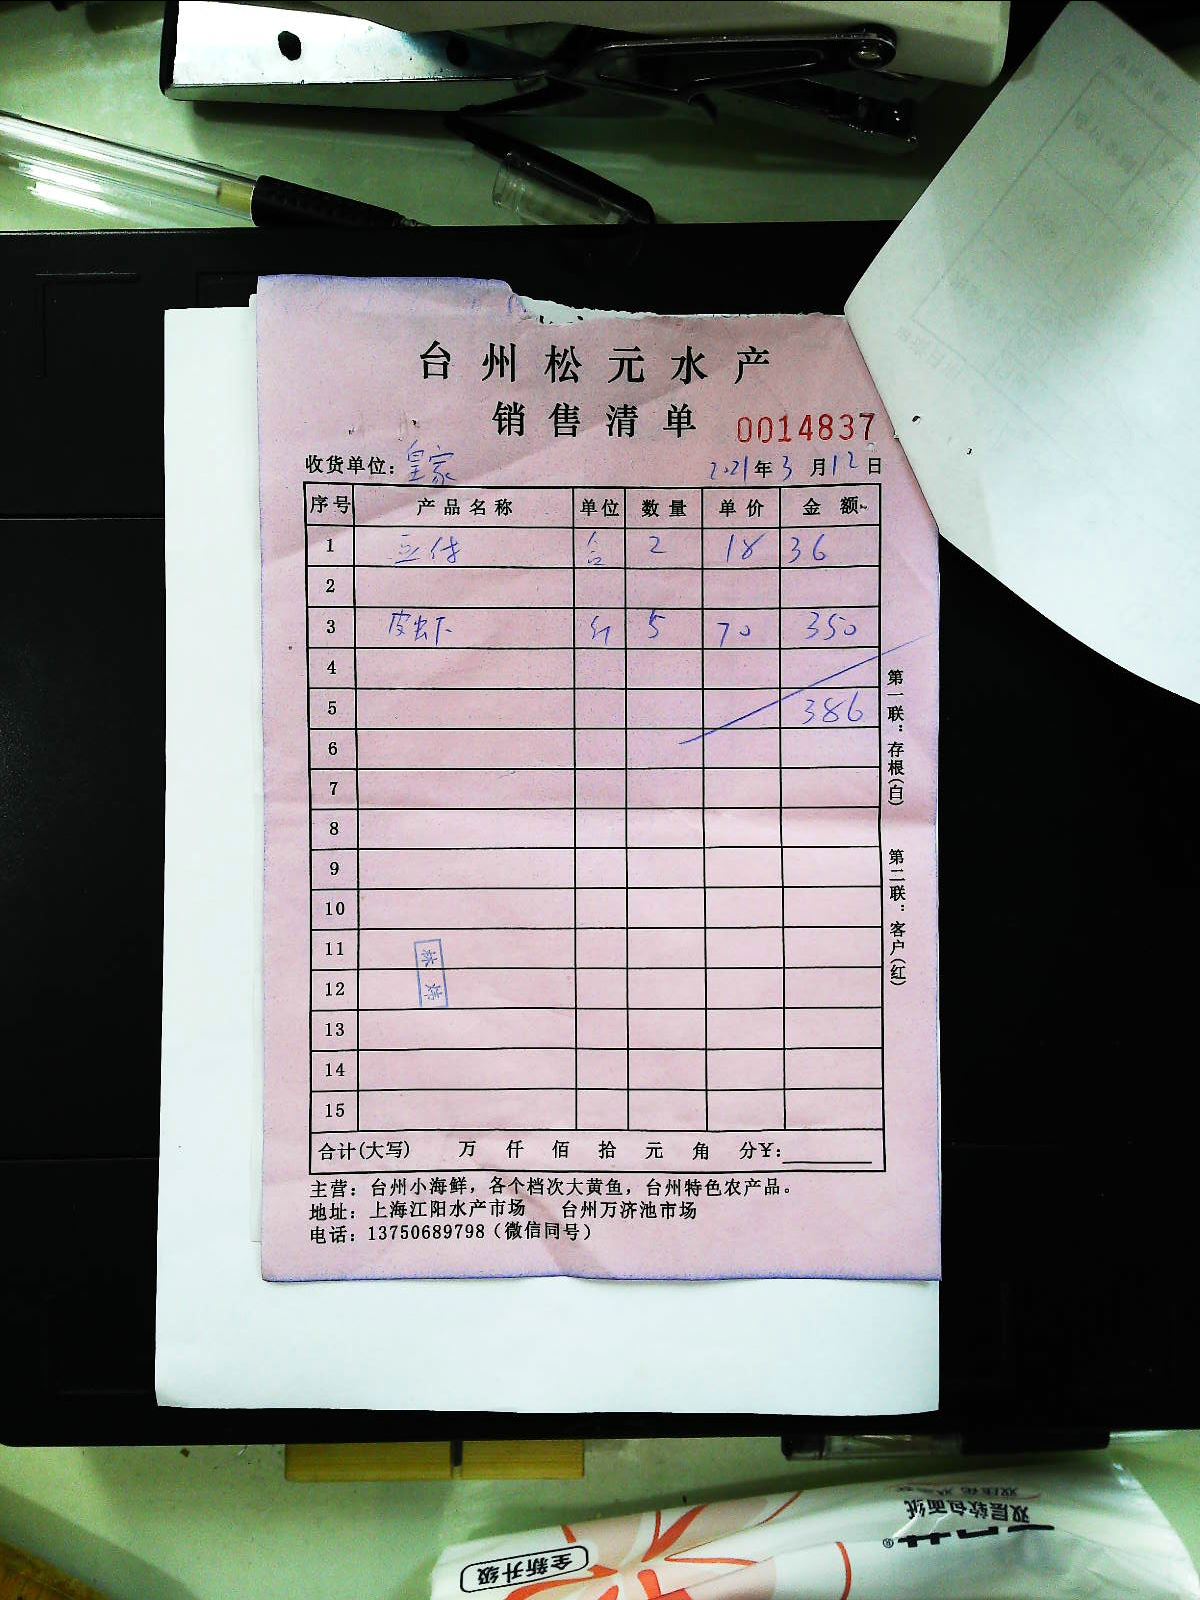 台州松元水产
销售清单 0014837
收货单位：皇家 2021年3月12日
序号 产品名称 单位 数量 单价 金额
1 豆付 合 2 18 36
2
3 皮虫下 斤 5 70 350
4
5 386
6
7
8
9
10
11
12
13
14
15
合计(大写) 万 仟 佰 拾 元 角 分¥:
主营：台州小海鲜，各个档次大黄鱼，台州特色农产品。
地址：上海江阳水产市场 台州万济池市场
电话：13750689798（微信同号）
第一联：存根(白)
第二联：客户(红)
双层软包面纸
全新升级